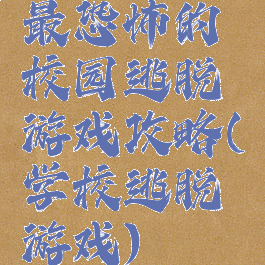 最恐怖的
校园逃脱
游戏攻略(
学校逃脱
游戏)